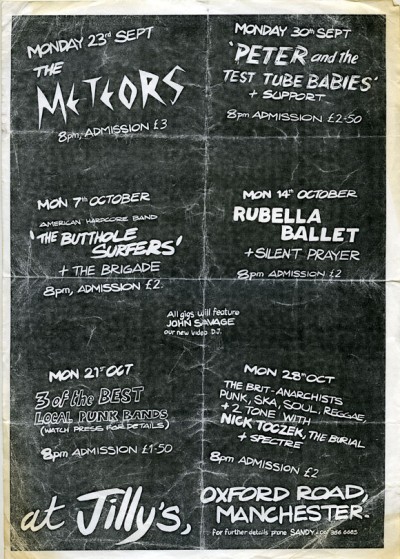 MONDAY 23rd SEPT
THE
METEORS
8pm, ADMISSION £3
MONDAY 30th SEPT
'PETER and the
TEST TUBE BABIES'
+ SUPPORT
8pm ADMISSION £2-50
MON 7th OCTOBER
AMERICAN HARDCORE BAND
'THE BUTTHOLE
SURFERS'
+ THE BRIGADE
8pm, ADMISSION £2.
MON 14th OCTOBER
RUBELLA
BALLET
+ SILENT PRAYER
8pm ADMISSION £2
All gigs will feature
JOHN SAVAGE
our new video D.J.
MON 21st OCT
3 of the BEST
LOCAL PUNK BANDS
(WATCH PRESS FOR DETAILS)
8pm ADMISSION £1-50
MON 28th OCT
THE BRIT-ANARCHISTS
PUNK, SKA, SOUL, REGGAE,
+ 2 TONE WITH
NICK TOCZEK, THE BURIAL
+ SPECTRE
8pm ADMISSION £2
at Jilly's,
OXFORD ROAD,
MANCHESTER.
For further details phone SANDY